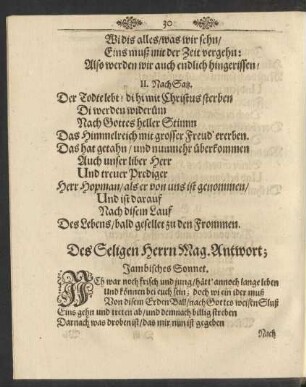 30
Wi dis alles/was wir sehn/
Eins muß mit der Zeit vergehn:
Also werden wir auch endlich hingerissen/
II. NachSatz.
Der Todte lebt/ di hi mit Christus sterben
Di werden widerüm
Nach Gottes heller Stimm
Das Himmelreich mit grosser Freud' ererben.
Das hat getahn/ und nunmehr überkommen
Auch unser liber Herr
Und treuer Prediger
Herr Hopman/ als er von uns ist genommen/
Und ist darauf
Nach disem Lauf
Des Lebens/ bald gesellet zu den Frommen.
Des Seligen Herrn Mag. Antwort;
Jambisches Sonnet.
Ich war noch frisch und jung/ hätt' annoch lange leben
Und können bei euch sein; doch wi ein ider muß
Von disem Erden Ball/ nach Gottes weisten Sluß
Eins gehn und treten ab/ und demnach billig streben
Darnach was droben ist/ das mir nun ist gegeben
Nach